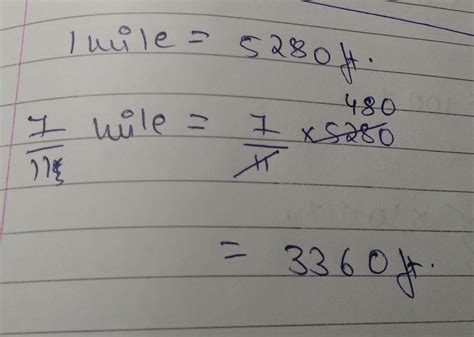 1 mile = 5280 ft.
480
7/11 mile = 7/11 × 5280
= 3360 ft.